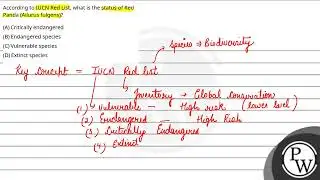 According to IUCN Red List, what is the status of Red
Panda (Ailurus fulgens)?
(A) Critically endangered
(B) Endangered species
(C) Vulnerable species
(D) Extinct species
Species → Biodiversity
Key Concept = IUCN Red List
Inventory → Global conservation
(1) Vulnerable — High risk (lower level)
(2) Endangered — High Risk
(3) Critically Endangered
(4) Extinct
PW